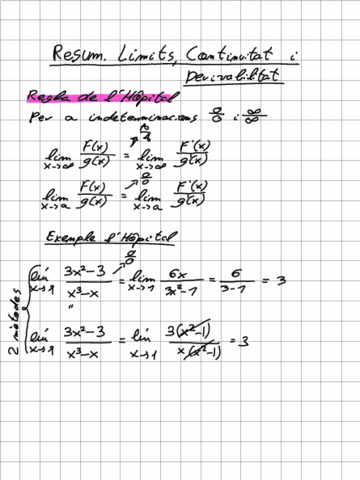 Resum. Límits, Continuïtat i
Derivabilitat
Regla de l'Hôpital
Per a indeterminacions 0/0 i ∞/∞
lim x→∞ F(x)/g(x) = lim x→∞ F'(x)/g'(x)
0/0
lim x→a F(x)/g(x) = lim x→a F'(x)/g'(x)
Exemple l'Hôpital
0/0
lím x→1 3x²-3/x³-x = lim x→1 6x/3x²-1 = 6/3-1 = 3
2 mètodes
lím x→1 3x²-3/x³-x = lím x→1 3(x²-1)/x(x²-1) = 3